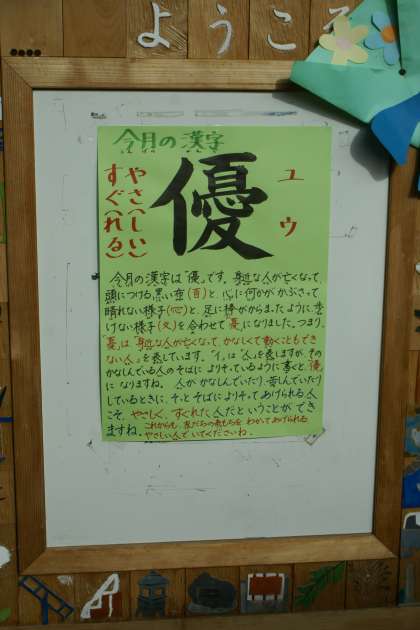 ようこそ
今月の漢字
優
やさ(しい)
すぐ(れる)
ユウ
今月の漢字は「優」です。身近な人が亡くなって、
頭につける黒い布(百)と、心に何かがかぶさって
晴れない様子(心)と、足に棒がからまったように歩
けない様子(夂)を合わせて憂になりました。つまり、
憂は「身近な人が亡くなって、かなしくて動くこともでき
ない人」を表しています。「亻」は「人」を表しますが、その
かなしんでいる人のそばによりそっているように書くと、「優」
になりますね。人がかなしんでいたり、苦しんでいたり
しているときに、そっとそばによりそってあげられる人
こそ、やさしく、すぐれた人だということができ
ますね。これからも、友だちの気もちをわかってあげられる
やさしい人でいてくださいね。